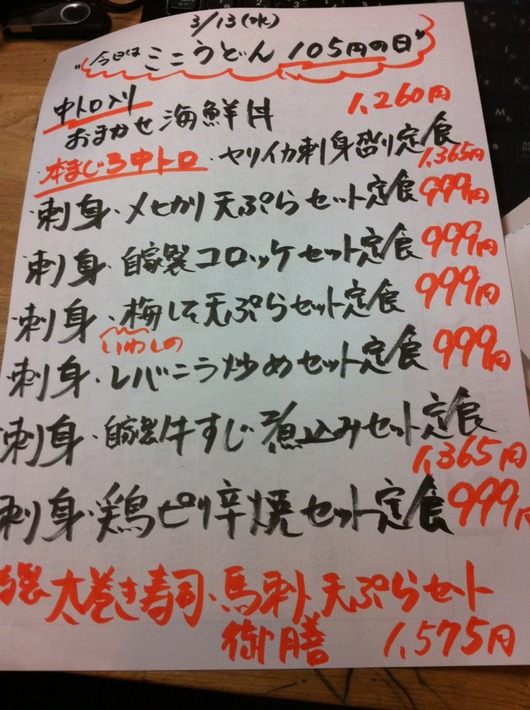 3/13(水)
"今日は ミニうどん 105円の日"
中トロ入り
おまかせ 海鮮丼 1,260円
・本まぐろ中トロ・ヤリイカ刺身盛り定食 1,365円
・刺身・メヒカリ天ぷらセット定食 999円
・刺身・自家製コロッケセット定食 999円
・刺身・梅しそ天ぷらセット定食 999円
いわしの
・刺身・レバニラ炒めセット定食 999円
・刺身・自家製牛すじ煮込みセット定食
1,365円
刺身・鶏ピリ辛焼セット定食 999円
太巻き寿司・馬刺・天ぷらセット
御膳 1,575円